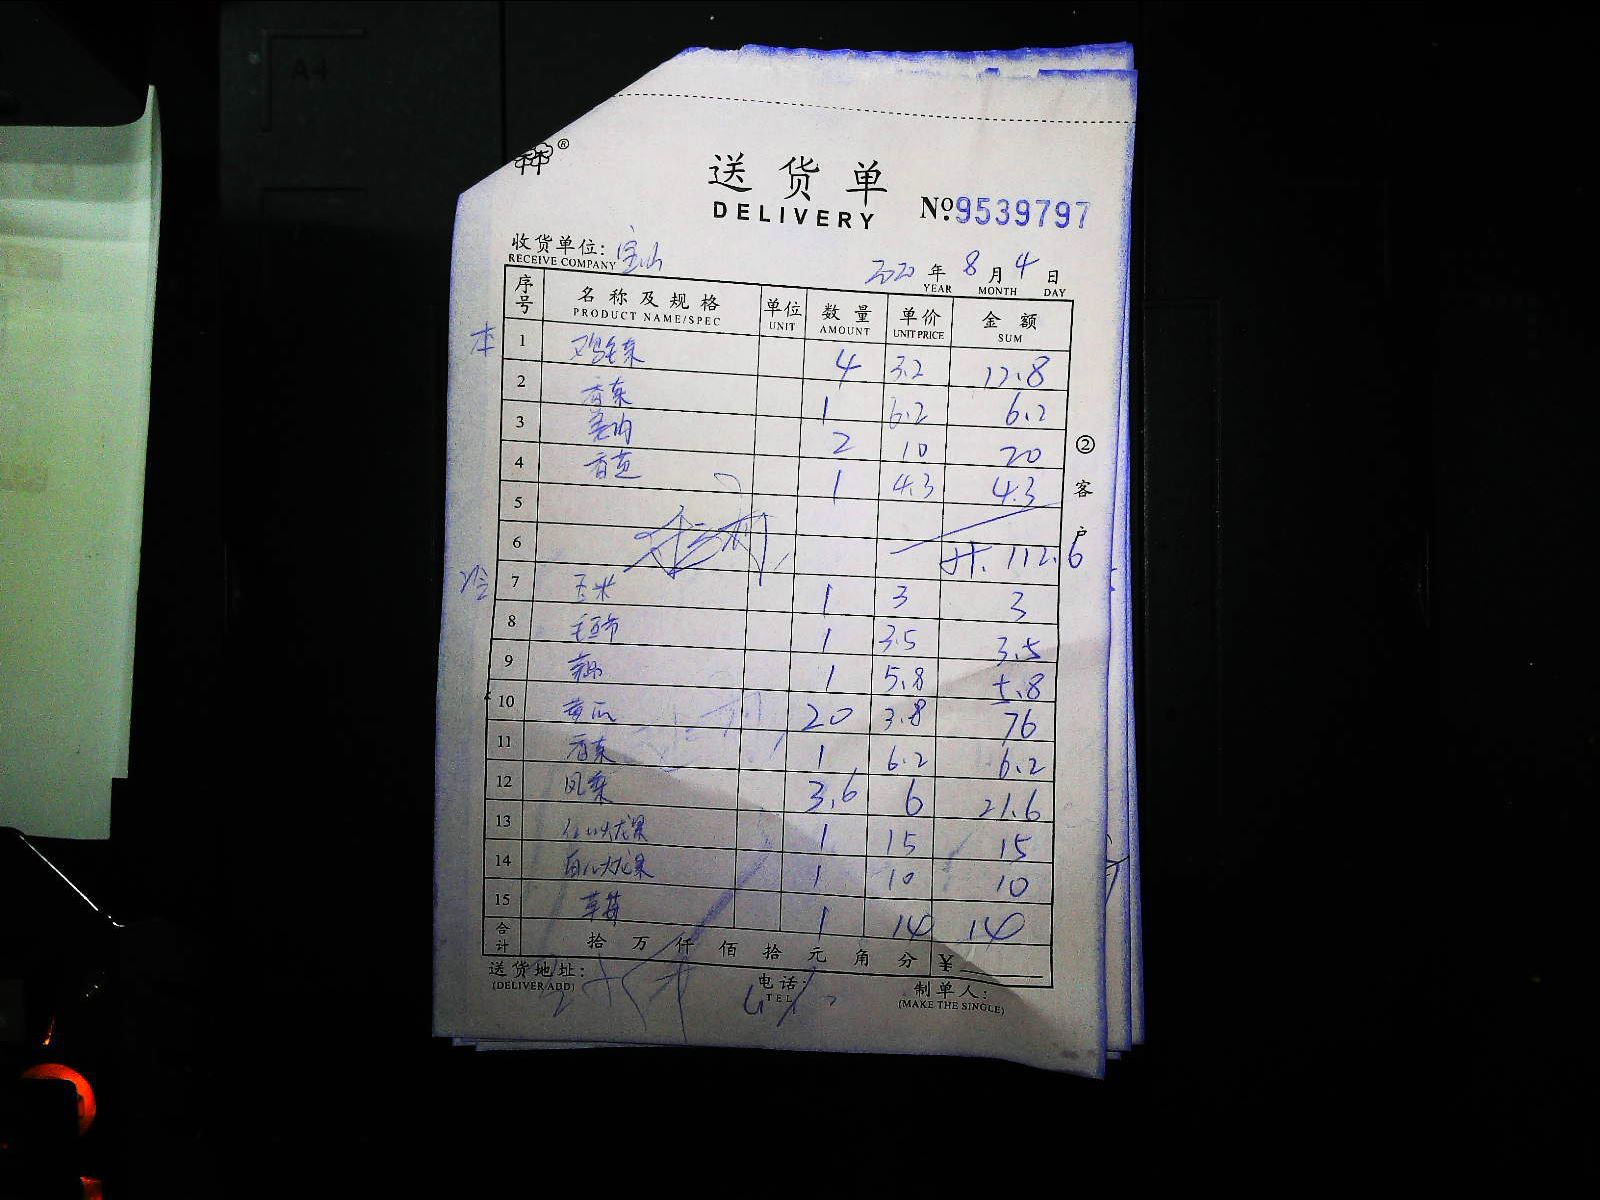 A4
®
送货单
DELIVERY
№ 9539797
收货单位: 宝山
RECEIVE COMPANY
2020 年 8 月 4 日
YEAR MONTH DAY
序号 名称及规格 单位 数量 单价 金额
PRODUCT NAME/SPEC UNIT AMOUNT UNIT PRICE SUM
本 1 4 3.2 12.8
2 香菜 1 6.2 6.2
3 2 10 20
4 香芭 1 4.3 4.3
5
6 计. 112.6
冷 7 玉米 1 3 3
8 1 3.5 3.5
9 1 5.8 5.8
10 黄瓜 20 3.8 76
11 香菜 1 6.2 6.2
12 3.6 6 21.6
13 红心火龙果 1 15 15
14 白心火龙果 1 10 10
15 草莓 1 14 14
合计 拾 万 仟 佰 拾 元 角 分 ¥
送货地址: 电话: 制单人:
(DELIVER ADD) TEL (MAKE THE SINGLE)
② 客户